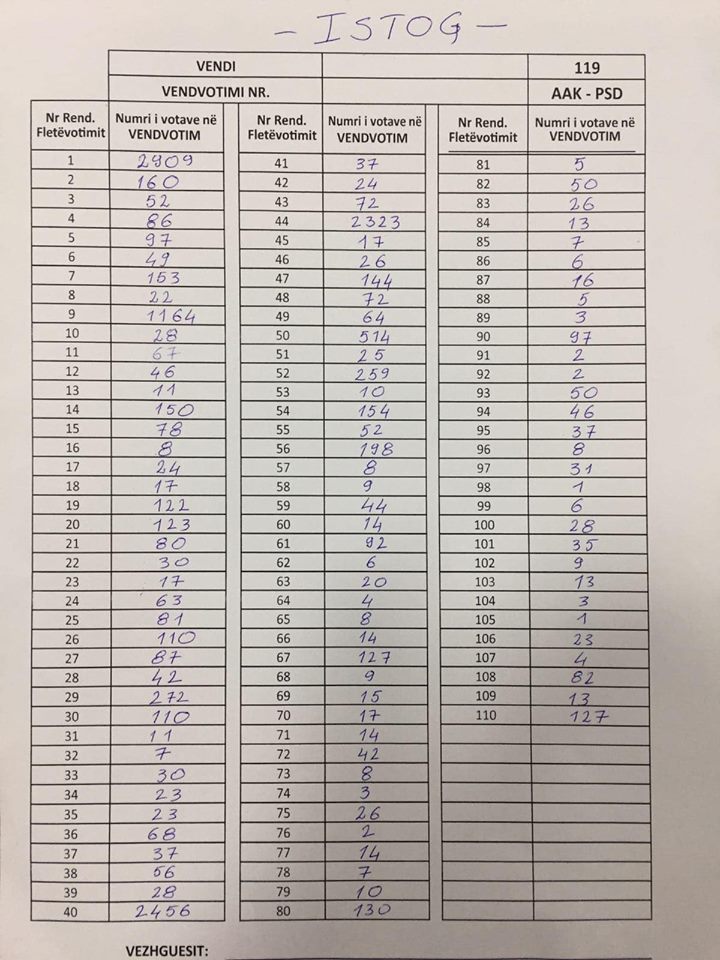 - ISTOG -
VENDI 119
VENDVOTIMI NR. AAK - PSD
Nr Rend. Fletëvotimit Numri i votave në VENDVOTIM Nr Rend. Fletëvotimit Numri i votave në VENDVOTIM Nr Rend. Fletëvotimit Numri i votave në VENDVOTIM
1 2909 41 37 81 5
2 160 42 24 82 50
3 52 43 72 83 26
4 86 44 2323 84 13
5 97 45 17 85 7
6 49 46 26 86 6
7 153 47 144 87 16
8 22 48 72 88 5
9 1164 49 64 89 3
10 28 50 514 90 97
11 67 51 25 91 2
12 46 52 259 92 2
13 11 53 10 93 50
14 150 54 154 94 46
15 78 55 52 95 37
16 8 56 198 96 8
17 24 57 8 97 31
18 17 58 9 98 1
19 122 59 44 99 6
20 123 60 14 100 28
21 80 61 92 101 35
22 30 62 6 102 9
23 17 63 20 103 13
24 63 64 4 104 3
25 81 65 8 105 1
26 110 66 14 106 23
27 87 67 127 107 4
28 42 68 9 108 82
29 272 69 15 109 13
30 110 70 17 110 127
31 11 71 14
32 7 72 42
33 30 73 8
34 23 74 3
35 23 75 26
36 68 76 2
37 37 77 14
38 56 78 7
39 28 79 10
40 2456 80 130
VEZHGUESIT: